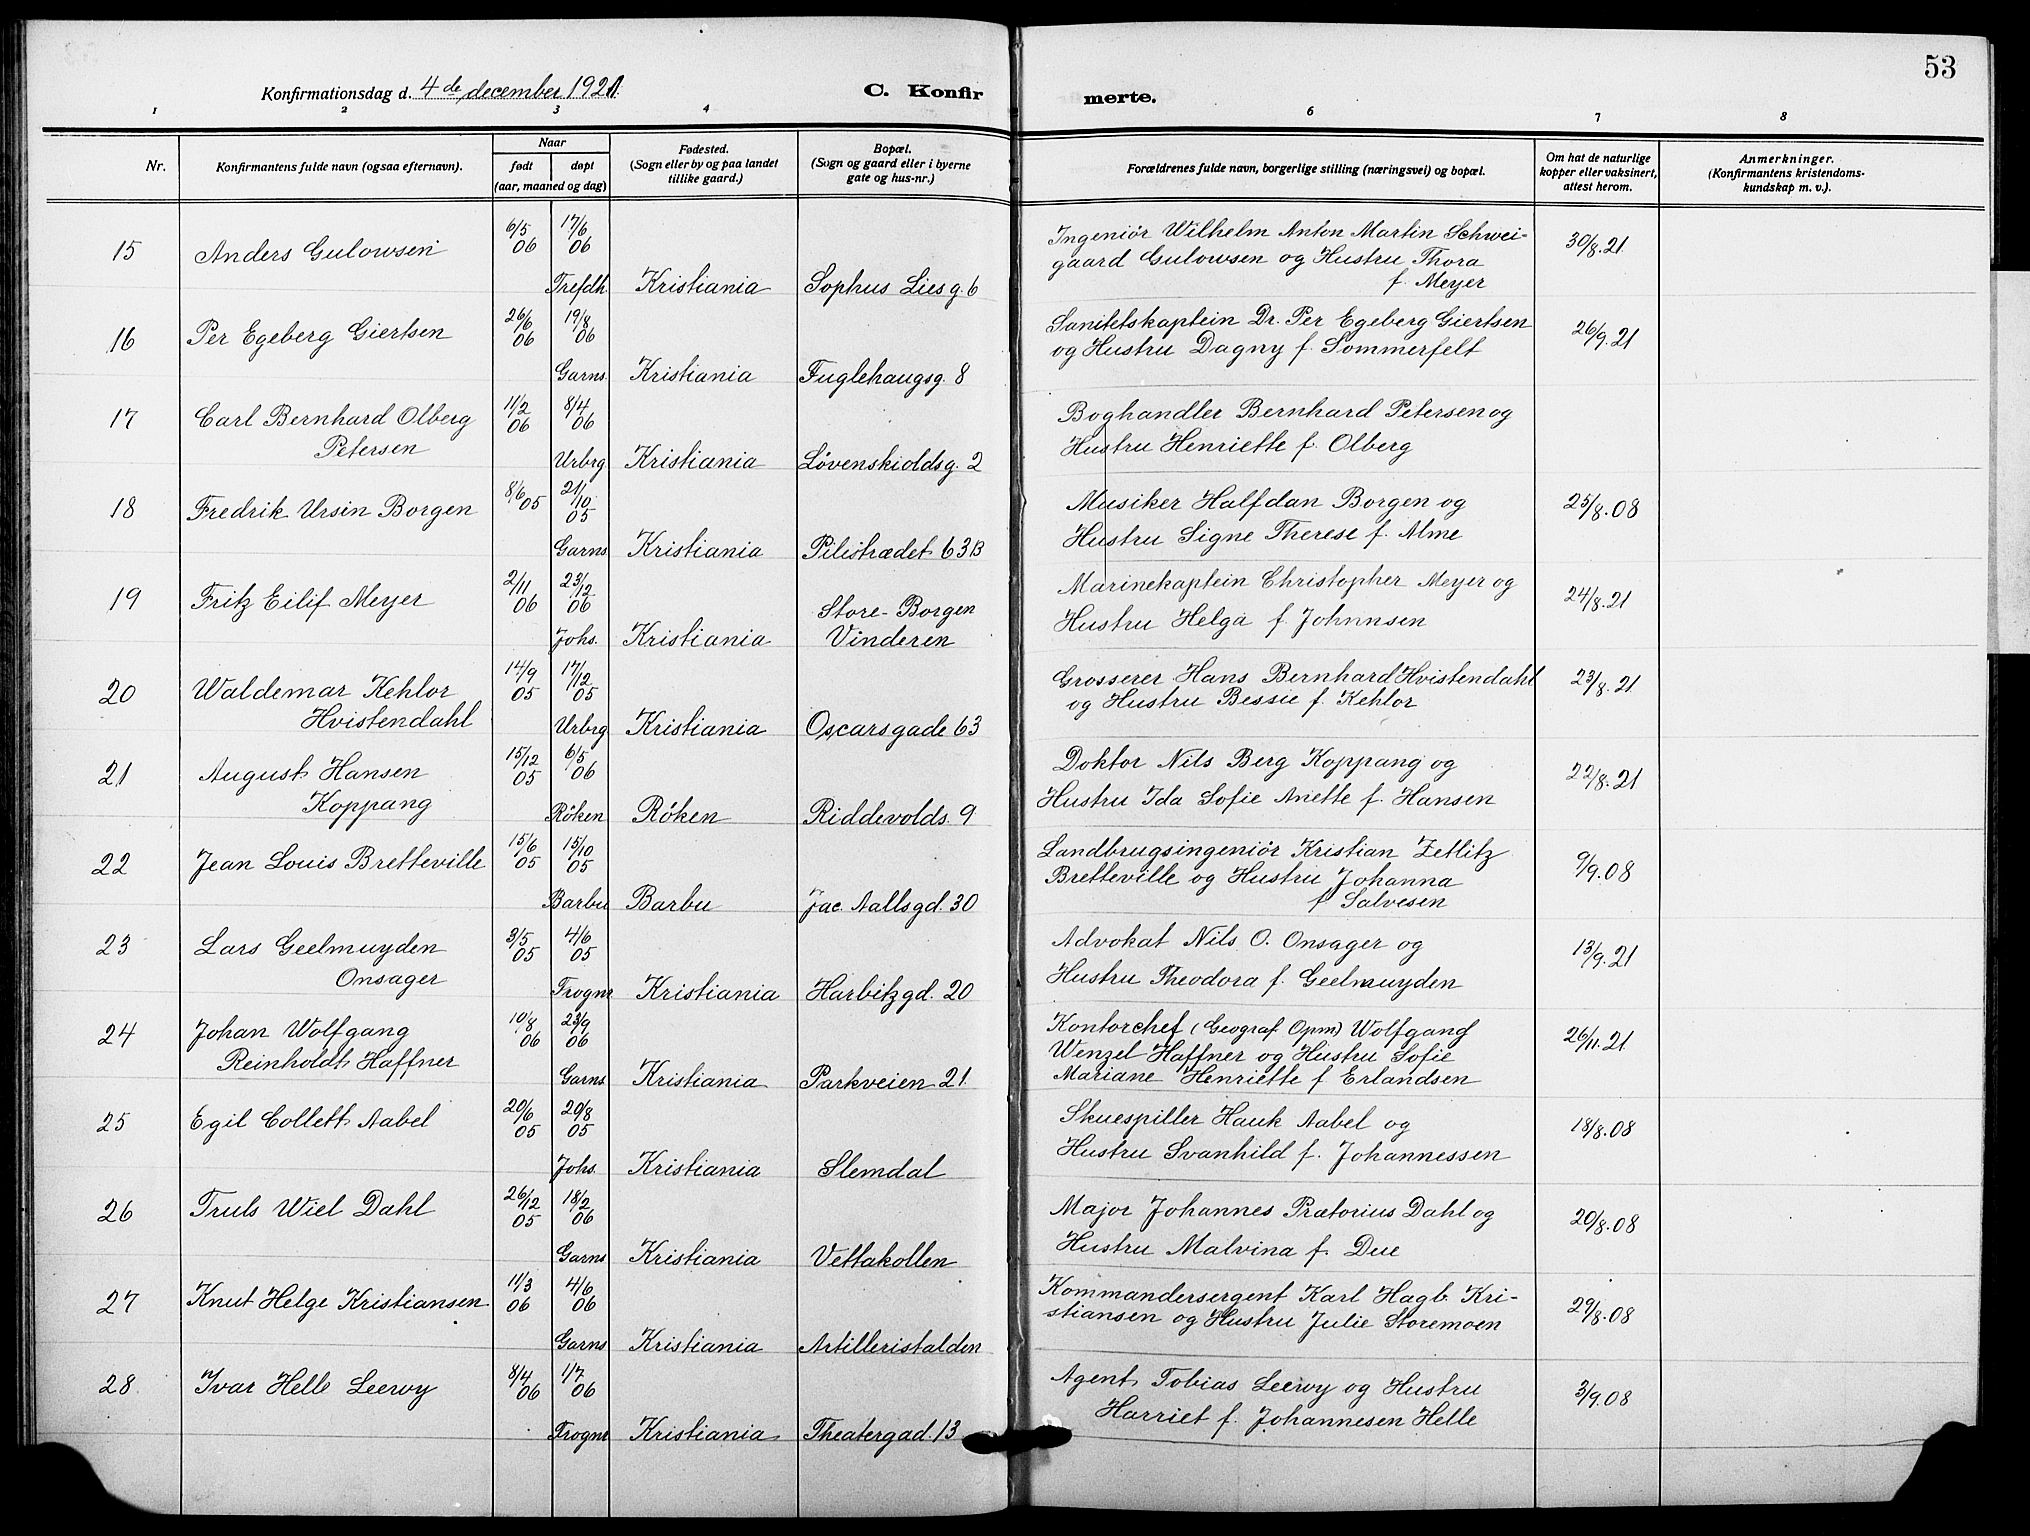 53
Konfirmationsdag d. 4de december 1921.
C. Konfir
merte.
1 2 3 4 6 7 8
Nr.
Konfirmantens fulde navn (ogsaa efternavn).
Naar
født døpt
(aar, maaned og dag)
Fødested.
(Sogn eller by og paa landet
tillike gaard.)
Bopæl.
(Sogn og gaard eller i byerne
gate og hus-nr.)
Forældrenes fulde navn, borgerlige stilling (næringsvei) og bopæl.
Om hat de naturlige
kopper eller vaksinert,
attest herom.
Anmerkninger.
(Konfirmantens kristendoms-
kundskap m. v.).
15 Anders Gulowsen 6/5 06 17/6 06
Trefdh. Kristiania Sophus Lies g. 6
Ingeniør Wilhelm Anton Martin Schwei-
gaard Gulowsen og Hustru Thora
f. Meyer
30/8.21
16 Per Egeberg Giertsen 26/6 06 19/8 06
Garns. Kristiania Fuglehaugsg. 8
Sanitetskaptein Dr. Per Egeberg Giertsen
og Hustru Dagny f. Sommerfelt
26/9.21
17 Carl Bernhard Olberg
Petersen
11/2 06 8/4 06
Urbrg Kristiania Løvenskioldsg. 2
Boghandler Bernhard Petersen og
Hustru Henriette f. Olberg
18 Fredrik Ursin Borgen 8/6 05 21/10 05
Garns Kristiania Pilestrædet 63B
Musiker Halfdan Borgen og
Hustru Signe Therese f. Alme
25/8.08
19 Fritz Eilif Meyer 2/11 06 23/12 06
Johs. Kristiania Store-Borgen
Vinderen
Marinekaptein Christopher Meyer og
Hustru Helga f. Johnnsen
24/8.21
20 Waldemar Kehlor
Hvistendahl
14/9 05 17/12 05
Urbrg Kristiania Oscarsgade 63
Grosserer Hans Bernhard Hvistendahl
og Hustru Bessie f. Kehlor
23/8.21
21 August Hansen
Koppang
15/12 05 6/5 06
Røken Røken Riddevolds. 9
Doktor Nils Berg Koppang og
Hustru Ida Sofie Anette f. Hansen
22/8.21
22 Jean Louis Bretteville 15/6 05 15/10 05
Barbu Barbu Jac. Aallsgd. 30
Landbrugsingeniør Kristian Zetlitz
Bretteville og Hustru Johanna
f Salvesen
9/9.08
23 Lars Geelmuyden
Onsager
3/5 05 4/6 05
Frognr Kristiania Harbitzgd. 20
Advokat Nils O. Onsager og
Hustru Theodora f. Geelmuyden
13/9.21
24 Johan Wolfgang
Reinholdt Haffner
10/8 06 23/9 06
Garns. Kristiania Parkveien 21.
Kontorchef (Geograf. Opm) Wolfgang
Wenzel Haffner og Hustru Sofie
Mariane Henriette f Erlandsen
26/11.21
25 Egil Collett Aabel 20/6 05 20/8 05
Johs. Kristiania Slemdal
Skuespiller Hauk Aabel og
Hustru Svanhild f. Johannessen
18/8.08
26 Truls Wiel Dahl 26/12 05 18/2 06
Garns Kristiania Vettakollen
Major Johannes Prætorius Dahl og
Hustru Malvina f. Due
20/8.08
27 Knut Helge Kristiansen 11/3 06 4/6 06
Garns Kristiania Artilleristalden
Kommandersergent Karl Hagb. Kri-
stiansen og Hustru Julie Storemoen
29/8.08
28 Ivar Helle Leewy 8/4 06 1/7 06
Frognr Kristiania Theatergad. 13
Agent Tobias Leewy og Hustru
Harriet f. Johannesen Helle
3/9.08